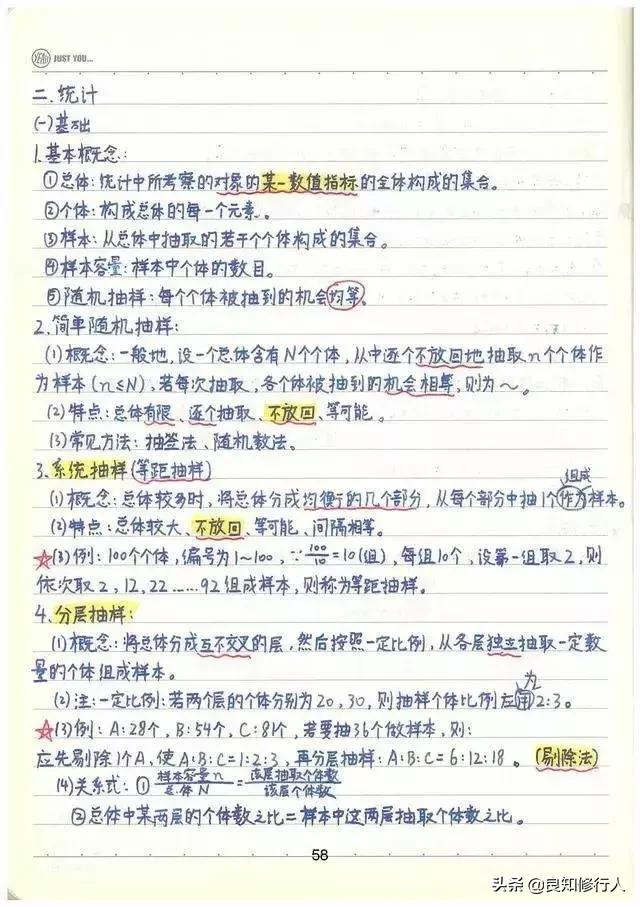 YEAH JUST YOU...
二.统计
(一)基础
1.基本概念:
①总体:统计中所考察的对象的某一数值指标的全体构成的集合。
②个体:构成总体的每一个元素。
③样本:从总体中抽取的若干个个体构成的集合。
④样本容量:样本中个体的数目。
⑤随机抽样:每个个体被抽到的机会均等。
2.简单随机抽样:
(1)概念:一般地,设一个总体含有N个个体,从中逐个不放回地抽取n个个体作
为样本(n≤N),若每次抽取,各个体被抽到的机会相等,则为~。
(2)特点:总体有限、逐个抽取、不放回、等可能。
(3)常见方法:抽签法、随机数法。
3.系统抽样(等距抽样)
组成
(1)概念:总体较多时,将总体分成均衡的几个部分,从每个部分中抽1个作为样本。
(2)特点:总体较大、不放回、等可能、间隔相等。
☆(3)例:100个个体,编号为1~100,∵100/10=10(组),每组10个,设第一组取2,则
依次取2,12,22……92组成样本,则称为等距抽样。
4.分层抽样:
(1)概念:将总体分成互不交叉的层,然后按照一定比例,从各层独立抽取一定数
量的个体组成样本。
为
(2)注:一定比例:若两个层的个体分别为20,30,则抽样个体比例应用2:3。
☆(3)例:A:28个,B:54个,C:81个,若要抽36个做样本,则:
应先剔除1个A,使A:B:C=1:2:3,再分层抽样:A:B:C=6:12:18。(剔除法)
(4)关系式:①样本容量n/总体N=该层抽取个体数/该层个体数
②总体中某两层的个体数之比=样本中这两层抽取个体数之比。
58
头条@良知修行人